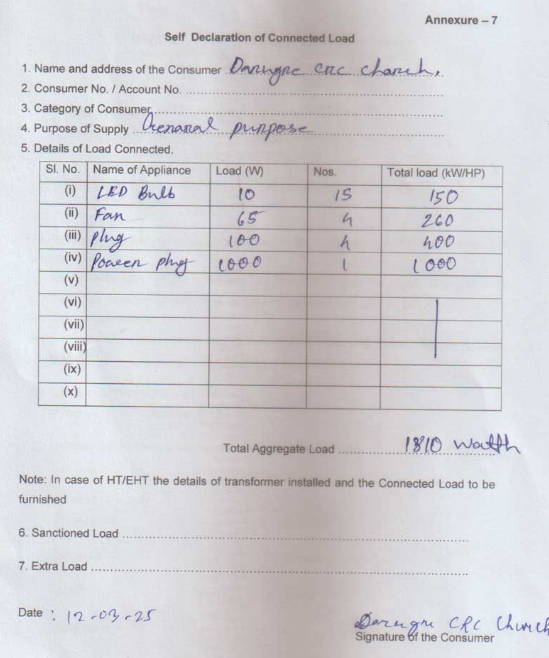 Annexure – 7
Self Declaration of Connected Load
1. Name and address of the Consumer CRC Church,
2. Consumer No. / Account No.
3. Category of Consumer
4. Purpose of Supply purpose
5. Details of Load Connected.
Sl. No. Name of Appliance Load (W) Nos. Total load (kW/HP)
(i) LED Bulb 10 15 150
(ii) Fan 65 4 260
(iii) Plug 100 4 400
(iv) Poween plug 1000 1 1000
(v)
(vi)
(vii)
(viii)
(ix)
(x)
Total Aggregate Load 1810 Watth
Note: In case of HT/EHT the details of transformer installed and the Connected Load to be
furnished
6. Sanctioned Load
7. Extra Load
Date : 12-03-25
CRC Church
Signature of the Consumer